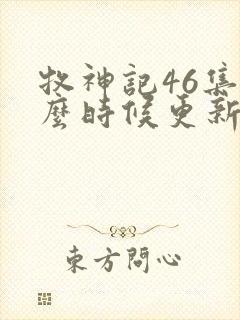 牧神記46集
麼時候更新
東方問心